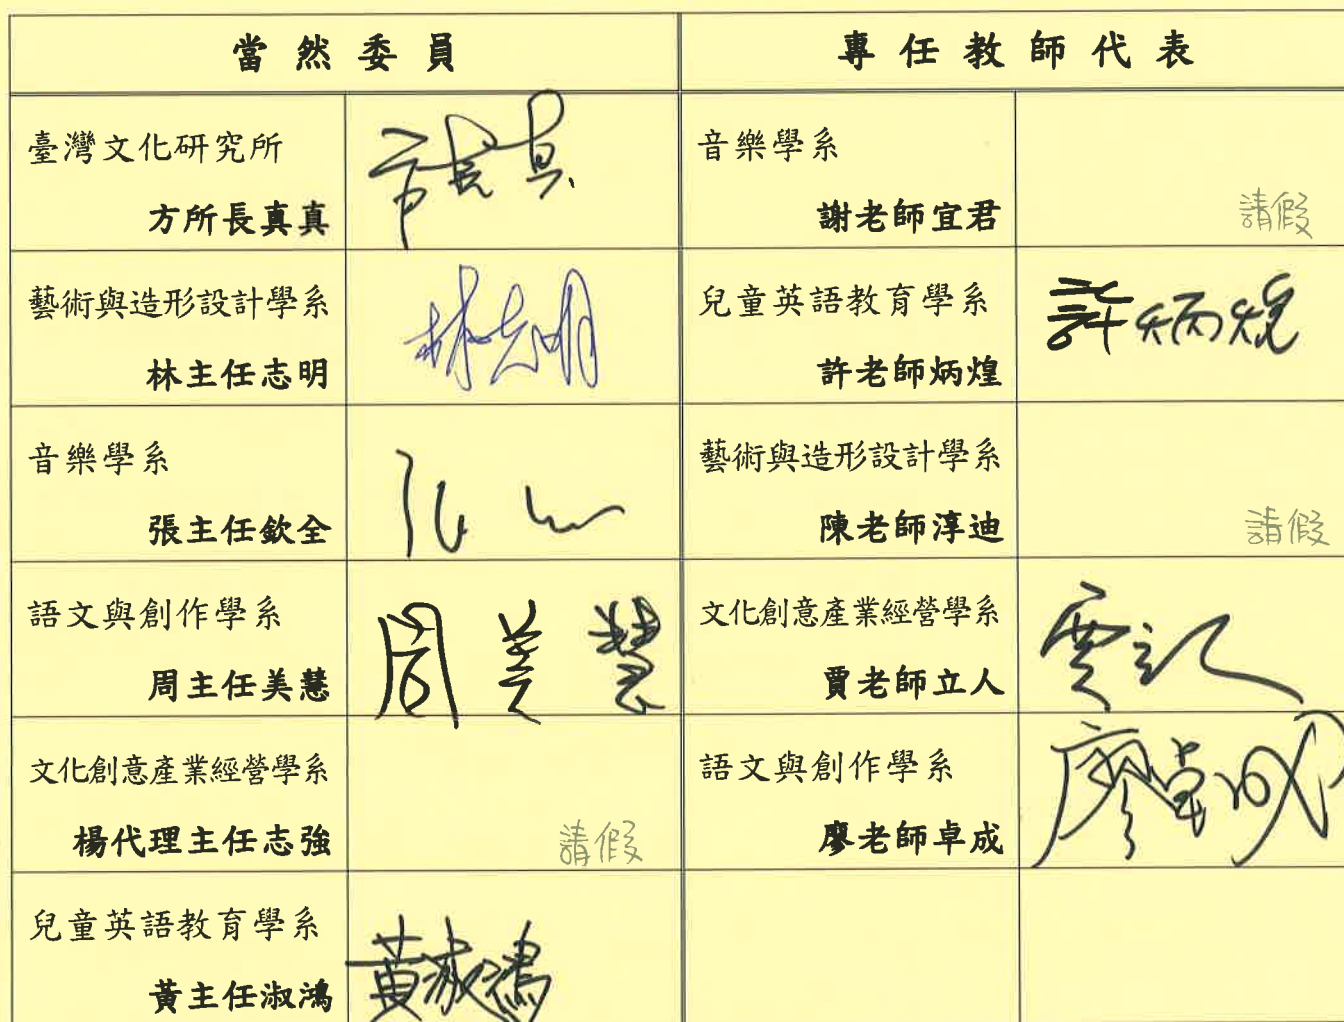 當然委員
專任教師代表
臺灣文化研究所
方所長真真
音樂學系
謝老師宜君
請假
藝術與造形設計學系
林主任志明
林志明
兒童英語教育學系
許老師炳煌
許炳煌
音樂學系
張主任欽全
藝術與造形設計學系
陳老師淳迪
請假
語文與創作學系
周主任美慧
周美慧
文化創意產業經營學系
賈老師立人
文化創意產業經營學系
楊代理主任志強
請假
語文與創作學系
廖老師卓成
廖卓成
兒童英語教育學系
黃主任淑鴻
黃淑鴻